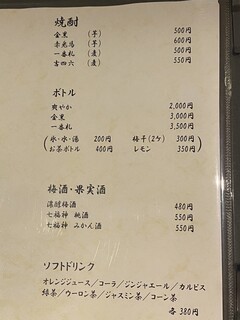 焼酎
金黒 (芋) 500円
赤兎馬 (芋) 600円
一番札 (麦) 500円
吉四六 (麦) 550円
ボトル
爽やか 2,000円
金黒 3,000円
一番札 3,500円
(氷・水・湯 200円 梅干(2ケ) 300円)
(お茶ボトル 400円 レモン 350円)
梅酒・果実酒
濃醇梅酒 480円
七福神 桃酒 550円
七福神 みかん酒 550円
ソフトドリンク
オレンジジュース/コーラ/ジンジャエール/カルピス
緑茶/ウーロン茶/ジャスミン茶/コーン茶
各 380円